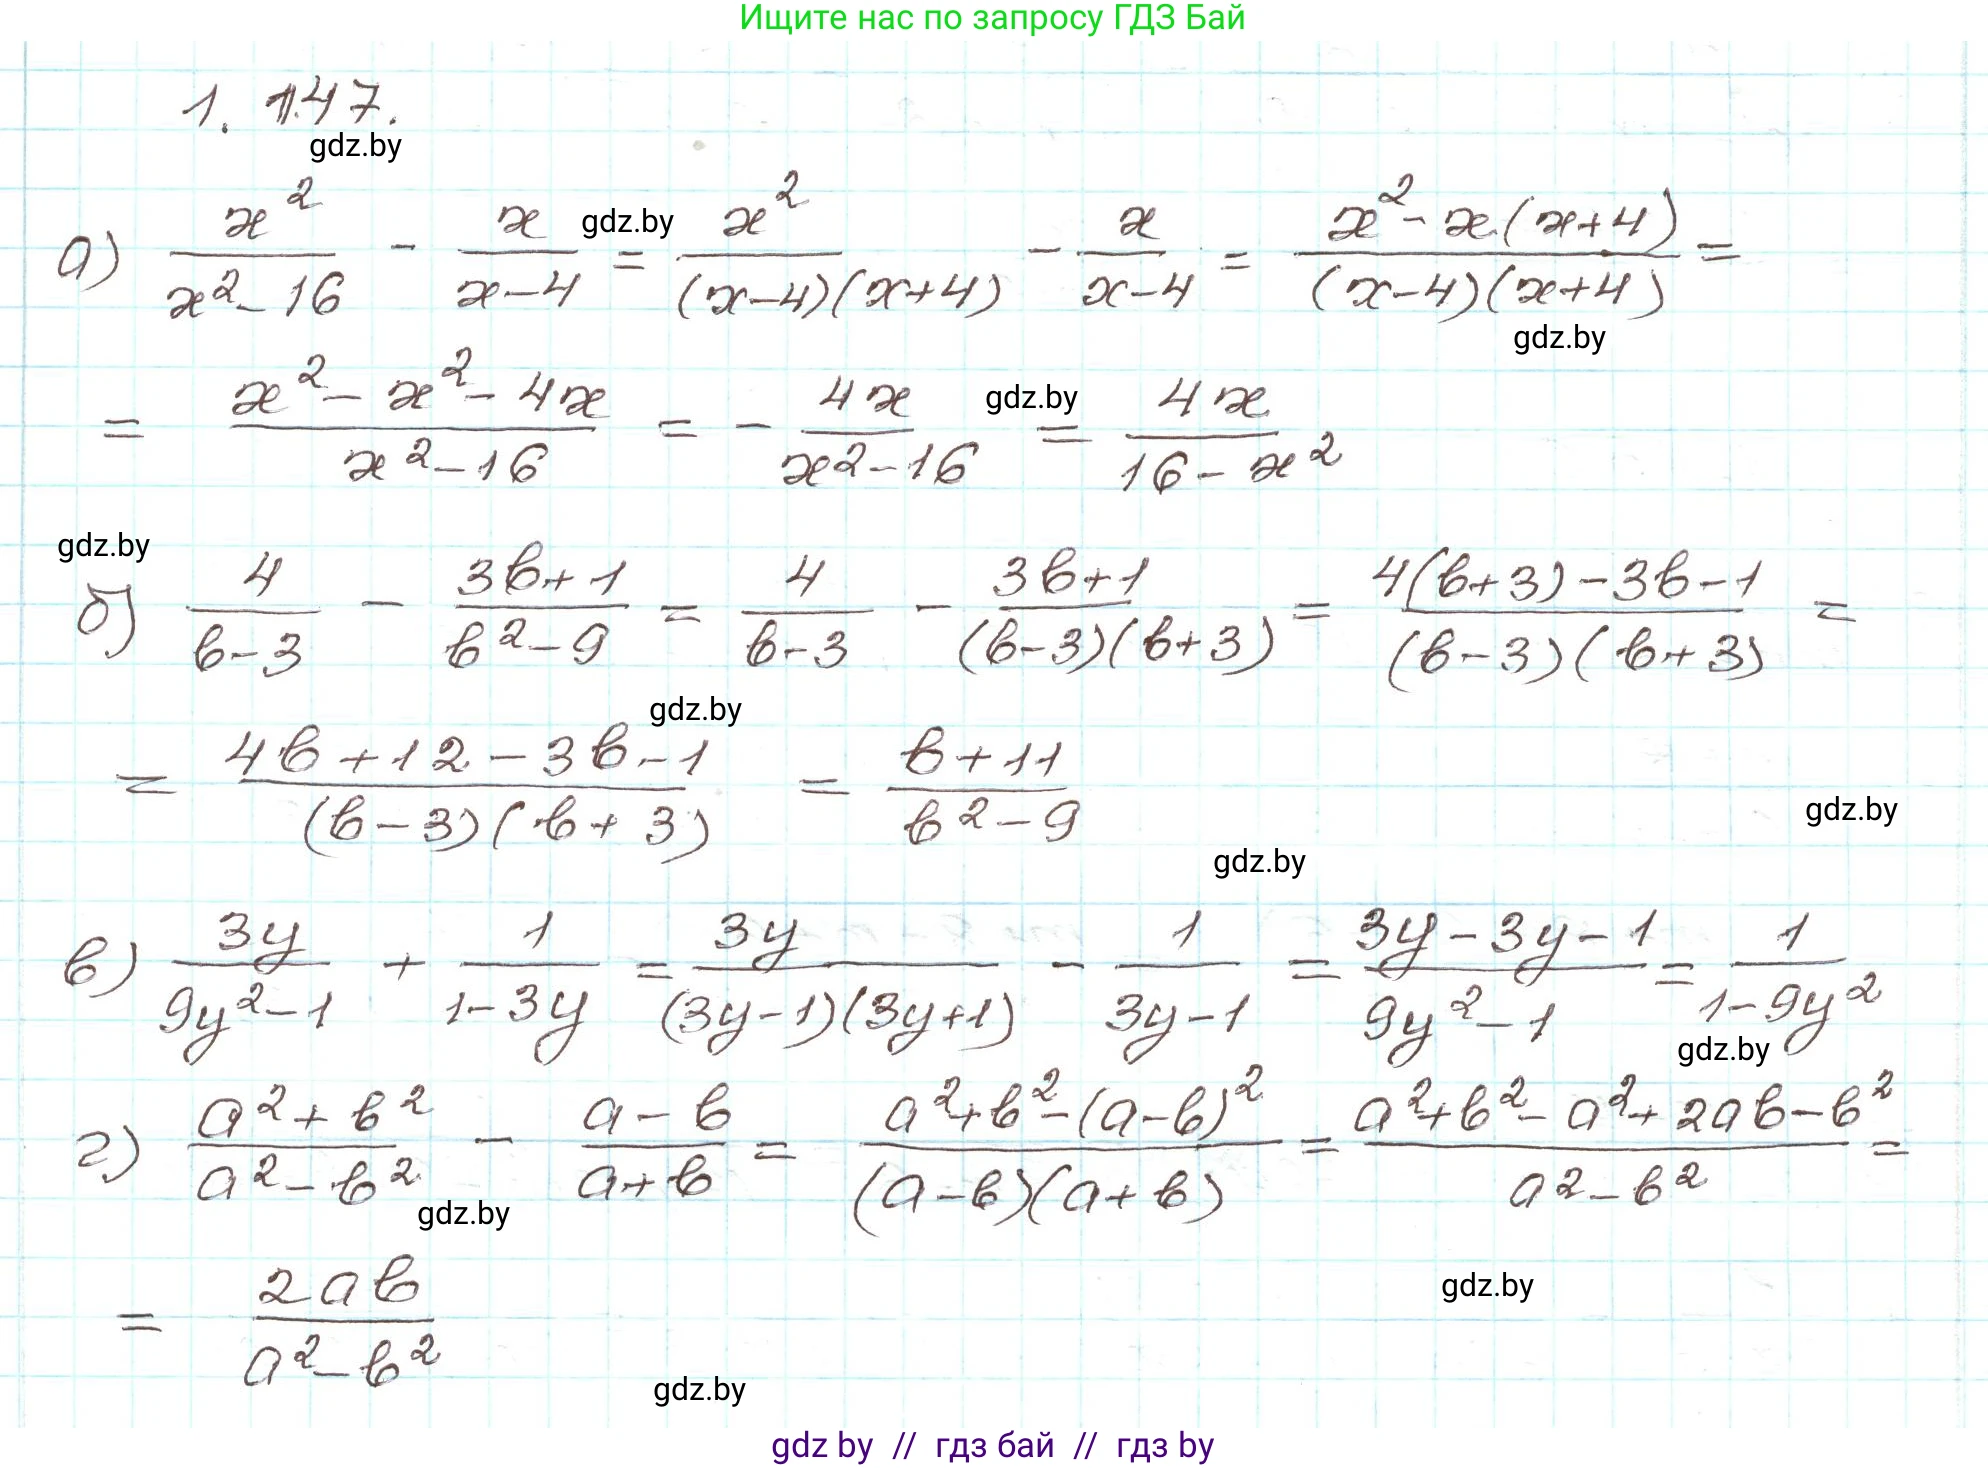 Ищите нас по запросу ГДЗ Бай
1. 147.
gdz.by
а) x²/(x²-16) - x/(x-4) = x²/((x-4)(x+4)) - x/(x-4) = (x²-x(x+4))/((x-4)(x+4)) =
gdz.by
gdz.by
= (x²-x²-4x)/(x²-16) = - 4x/(x²-16) = 4x/(16-x²)
gdz.by
gdz.by
б) 4/(b-3) - (3b+1)/(b²-9) = 4/(b-3) - (3b+1)/((b-3)(b+3)) = (4(b+3)-3b-1)/((b-3)(b+3)) =
gdz.by
= (4b+12-3b-1)/((b-3)(b+3)) = (b+11)/(b²-9)
gdz.by
gdz.by
в) 3y/(9y²-1) + 1/(1-3y) = 3y/((3y-1)(3y+1)) - 1/(3y-1) = (3y-3y-1)/(9y²-1) = 1/(1-9y²)
gdz.by
г) (a²+b²)/(a²-b²) - (a-b)/(a+b) = (a²+b²-(a-b)²)/((a-b)(a+b)) = (a²+b²-a²+2ab-b²)/(a²-b²) =
gdz.by
= 2ab/(a²-b²)
gdz.by
gdz.by
gdz by // гдз бай // гдз by